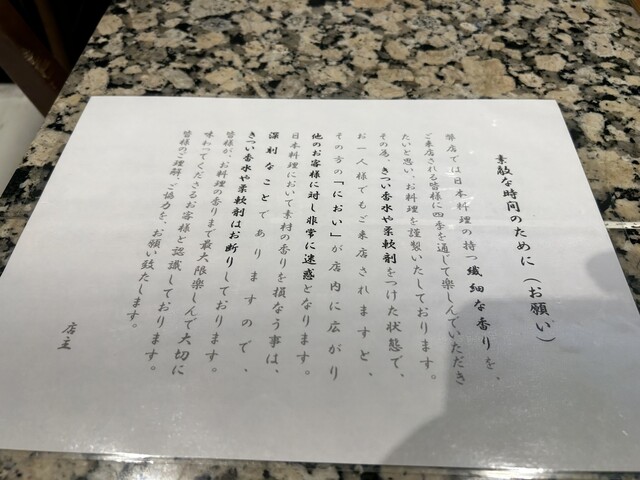 素敵な時間のために（お願い）
弊店では日本料理の持つ繊細な香りを、
ご来店される皆様に四季を通じて楽しんでいただき
たいと思い、お料理を謹製いたしております。
その為、きつい香水や柔軟剤をつけた状態で、
お一人様でもご来店されますと、
その方の「におい」が店内に広がり
他のお客様に対し非常に迷惑となります。
日本料理において素材の香りを損なう事は、
深刻なことでありますので、
きつい香水や柔軟剤はお断りしております。
皆様が、お料理の香りまで最大限楽しんで大切に
味わってくださるお客様と認識しております。
皆様のご理解、ご協力を、お願い致たします。
店主